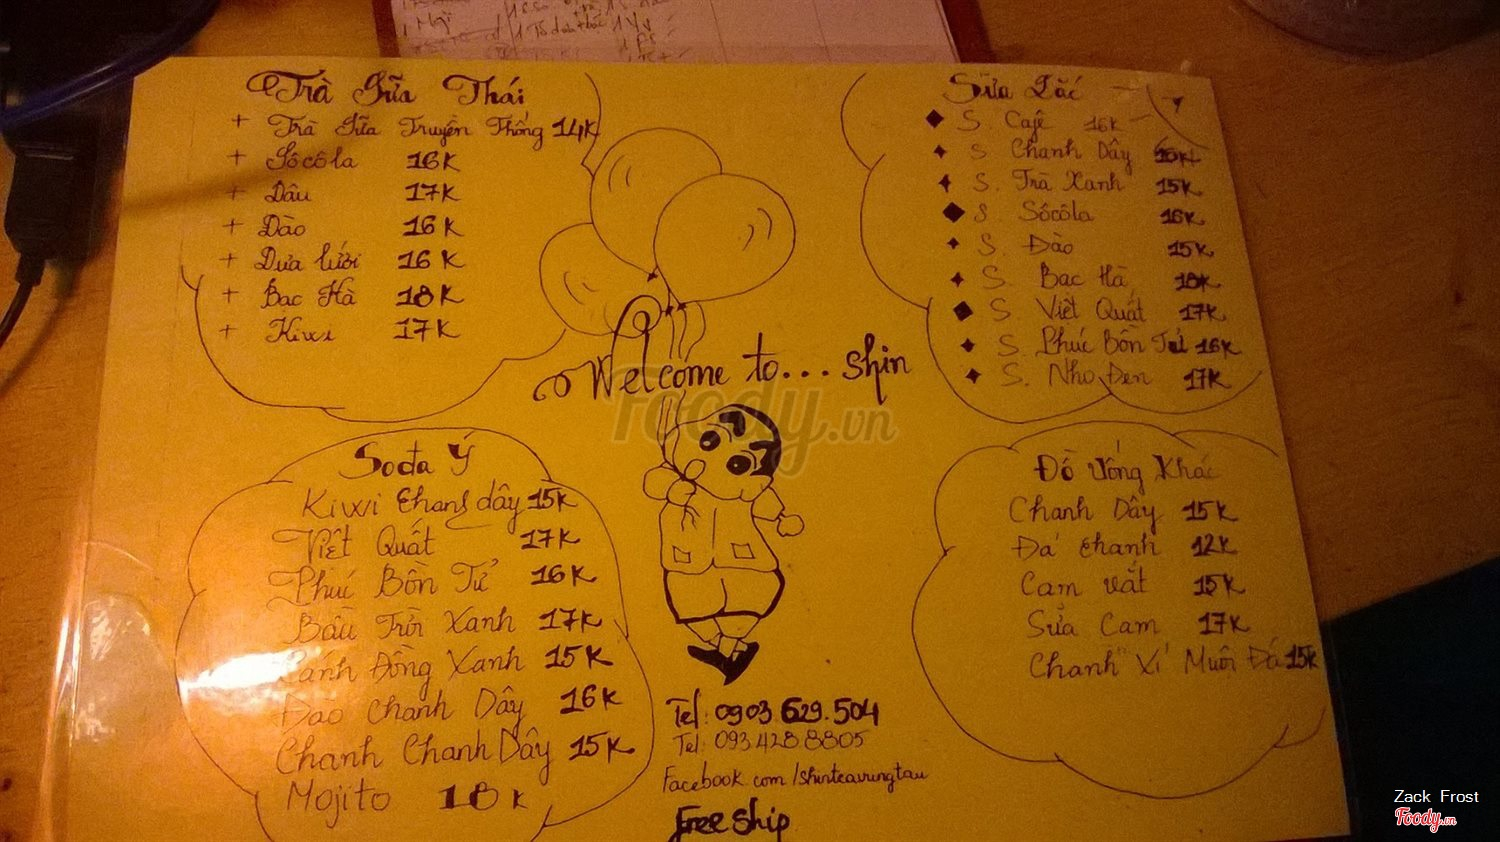 Trà Sữa Thái
+ Trà Sữa Truyền Thống 14K
+ Sôcôla 16K
+ Dâu 17K
+ Đào 16K
+ Dưa lưới 16K
+ Bạc Hà 18K
+ Kiwi 17K
Sữa Lắc
S. Cafê 16K
S Chanh Dây
S. Trà Xanh 15K
S. Sôcôla 16K
S. Đào 15K
S. Bạc Hà 18K
S. Việt Quất 17K
S. Phúc Bồn Tử 16K
S. Nho Đen 17K
Welcome to... shin
Foody.vn
Sođa Ý
Kiwi Chanh dây 15K
Việt Quất 17K
Phúc Bồn Tử 16K
Bầu Trời Xanh 17K
Cánh Đồng Xanh 15K
Đào chanh Dây 16K
Chanh Chanh Dây 15K
Mojito 18K
Đồ Uống Khác
Chanh Dây 15K
Đá chanh 12K
Cam vắt 15K
Sữa Cam 17K
Chanh Xí Muội Đá 15K
Tel: 0903.629.504
Tel: 093.428.8805
Facebook.com/shinteavungtau
Free Ship
Zack Frost
Foody.vn